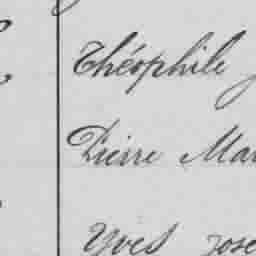 Théophile
Pierre Mar
Yves Jose